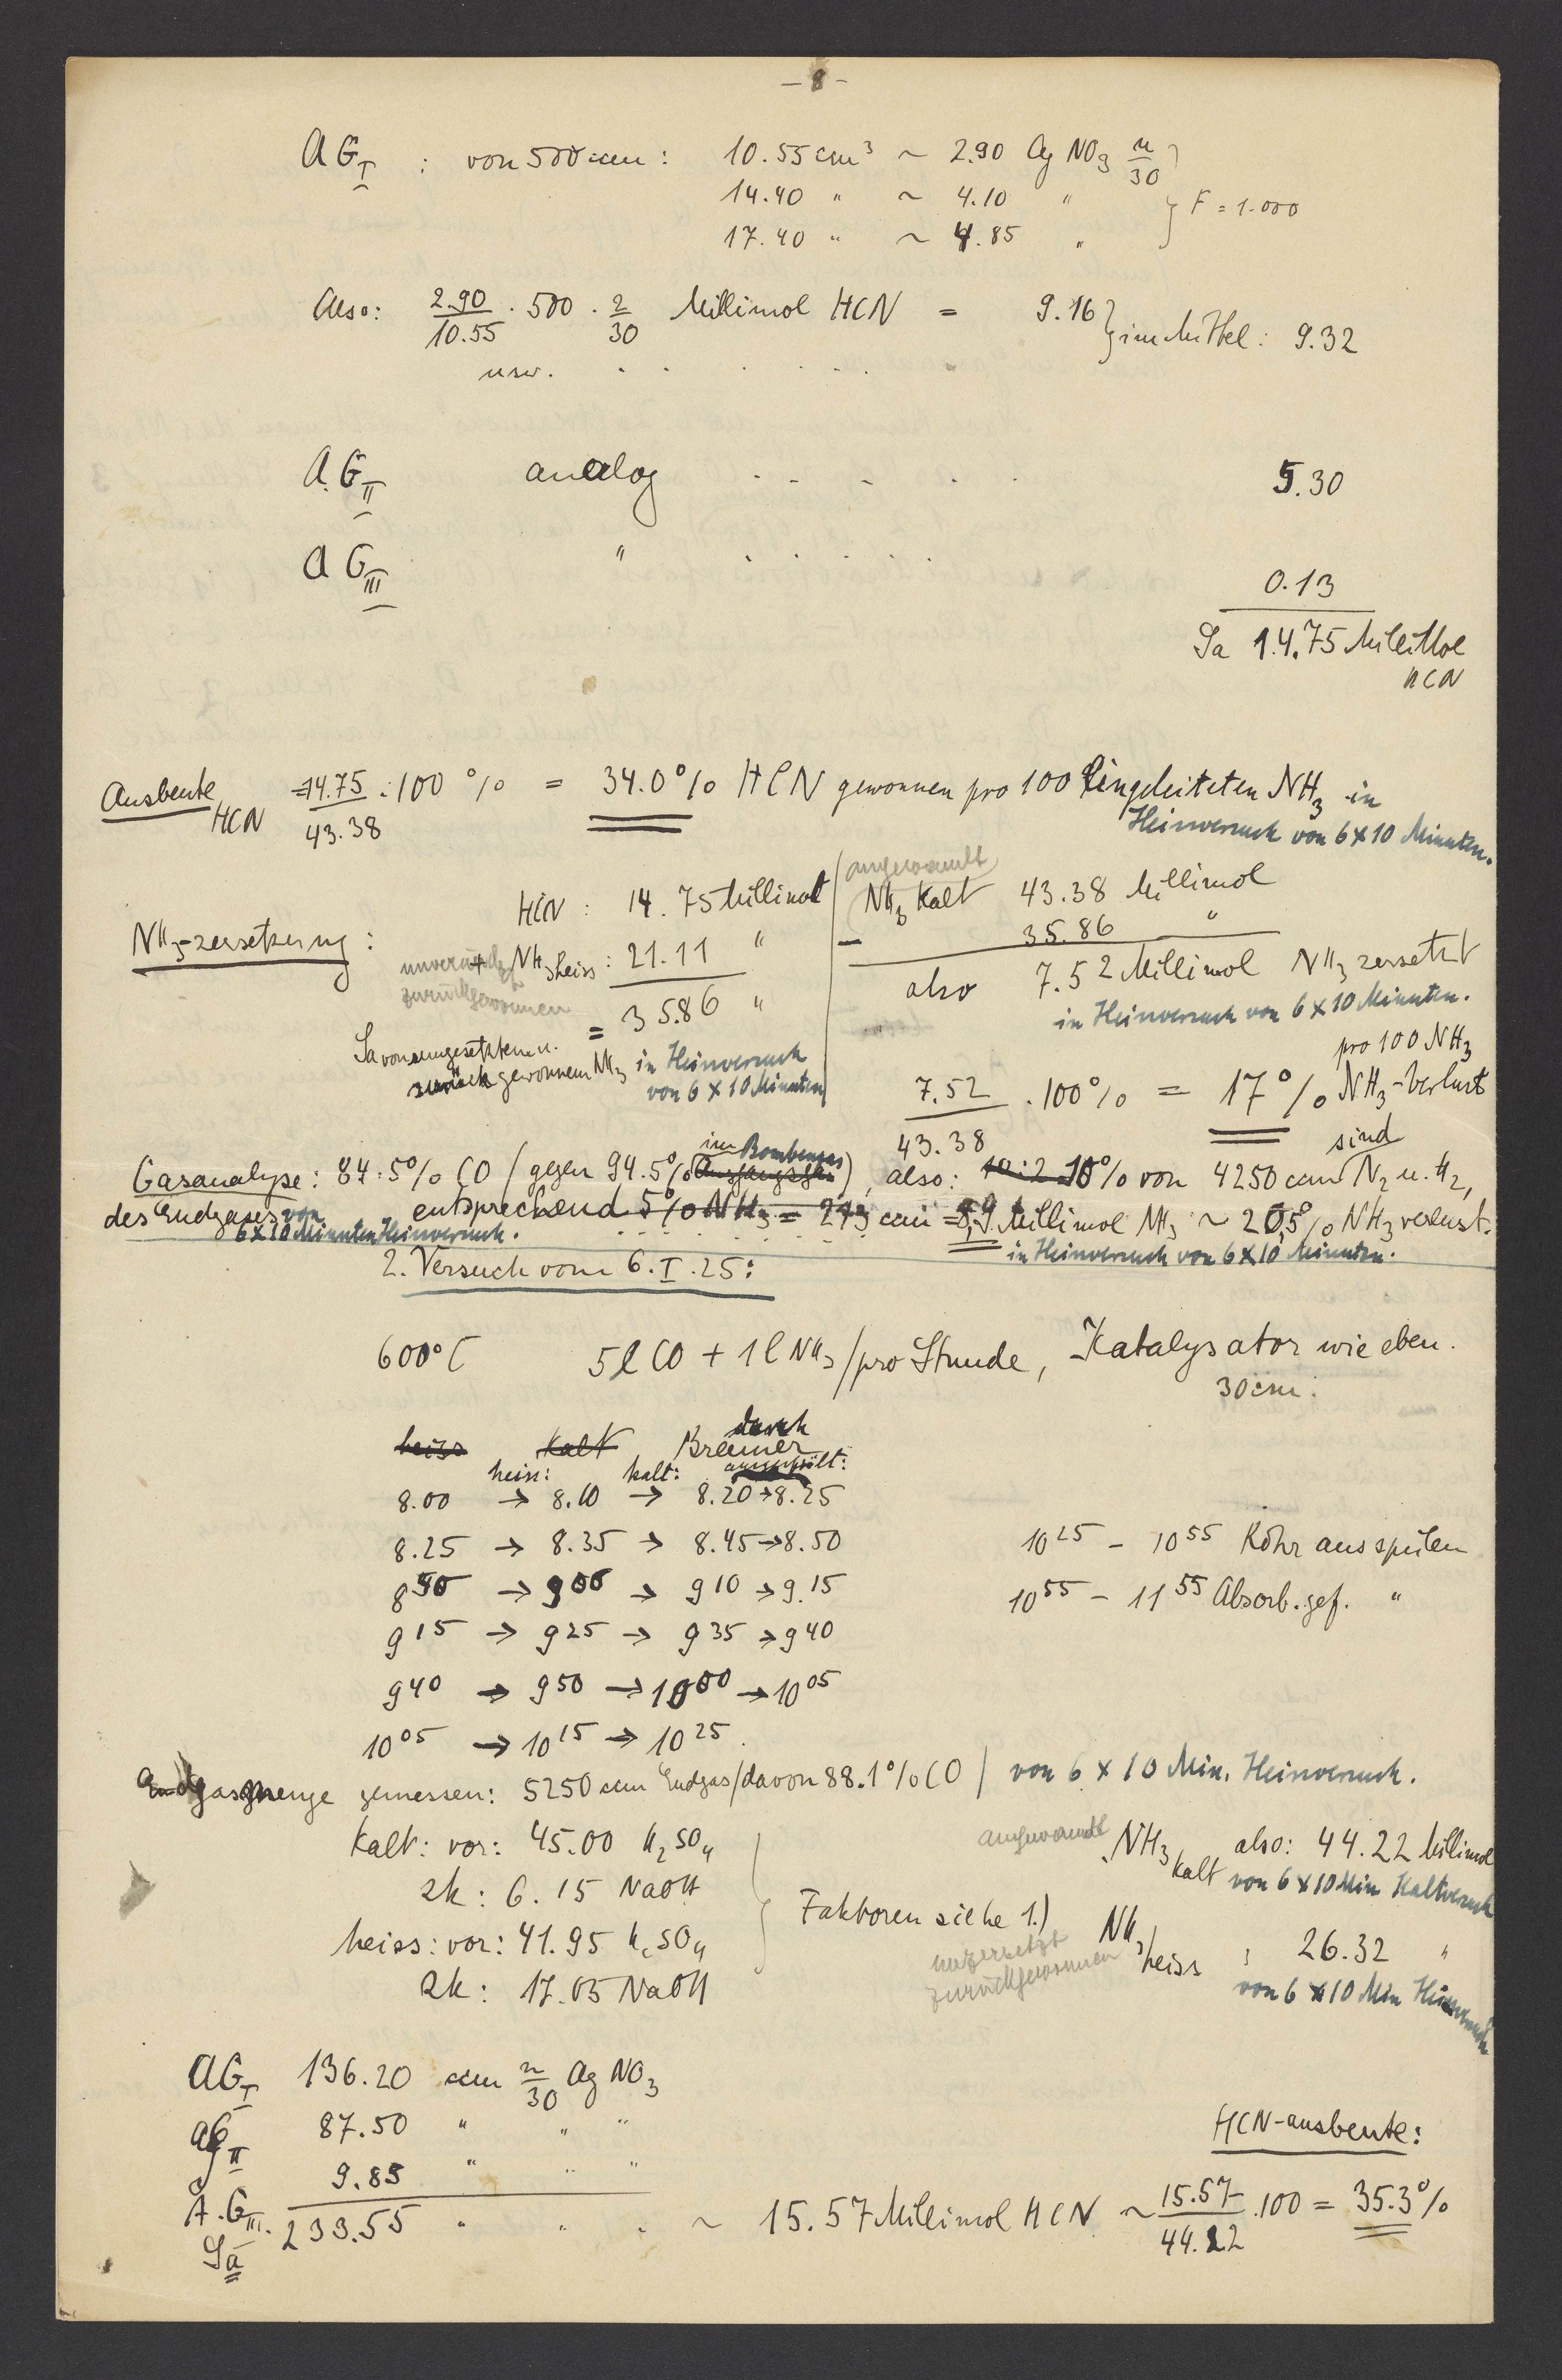 – 8 –
A G I : von 500 ccm : 10.55 cm³ ~ 2.90 Ag NO3 n/30
14.40 " ~ 4.10 " } F = 1.000
17.40 " ~ 4.85 "
Also: 2.90/10.55 · 500 · 2/30 Millimol HCN = 9.16 } im Mittel: 9.32
usw. . . . . . .
A. G II analog . . . . . 5.30
A G III " . . . . . 0.13
Sa 14.75 Millimol
HCN
Ausbeute HCN = 14.75/43.38 · 100 % = 34.0 % HCN gewonnen pro 100 eingeleiteten NH3 in
Heissversuch von 6 x 10 Minuten.
angewandt
HCN : 14.75 Millimol NH3 kalt 43.38 Millimol
NH3-zersetzung :
unverändert zurückgewonnen + NH3 heiss : 21.11 " – 35.86 "
= 35.86 " also 7.52 Millimol NH3 zersetzt
in Heissversuch von 6 x 10 Minuten.
Sa von umgesetztem u.
zurückgewonnem NH3 in Heissversuch
von 6 x 10 Minuten
pro 100 NH3
7.52/43.38 · 100 % = 17 % NH3-Verlust
sind
Gasanalyse : 84.5 % CO (gegen 94.5 % Ausgangsgas im Bombengas), also : 10:2 10 % von 4250 ccm N2 u. H2,
des Endgases von entsprechend 5 % NH3 = 213 ccm = 8,9 Millimol NH3 ~ 20,5 % NH3 verlust.
6 x 10 Minuten Heissversuch. . . . . . . . in Heissversuch von 6 x 10 Minuten.
2. Versuch vom 6. I. 25 :
600° C 5 l CO + 1 l NH3 / pro Stunde, Katalysator wie eben.
30 cm.
heiss kalt Bremer durch
heiss: kalt:
8.00 → 8.10 → 8.20 → 8.25
8.25 → 8.35 → 8.45 → 8.50
8 50 → 9 00 → 9 10 → 9.15
9 15 → 9 25 → 9 35 → 9 40
9 40 → 9 50 → 10 00 → 10 05
10 05 → 10 15 → 10 25.
10 25 – 10 55 Rohr ausspülen
10 55 – 11 55 Absorb. gef. "
Endgasmenge gemessen: 5250 ccm Endgas / davon 88.1 % CO / von 6 x 10 Min. Heissversuch.
Kalt: vor: 45.00 H2SO4
zk: 6.15 NaOH
heiss: vor: 41.95 H2SO4
zk: 17.05 NaOH
Faktoren siehe 1.)
angewandt NH3 kalt also: 44.22 Millimol
von 6 x 10 Min Kaltversuch
unzersetzt
zurückgewonnen NH3 heiss : 26.32 "
von 6 x 10 Min Heissversuch
AG I 136.20 ccm n/30 Ag NO3
AG II 87.50 " " "
A.G III. 9.85 " " "
Sa 233.55 " " " ~ 15.57 Millimol HCN ~ 15.57/44.22 · 100 = 35.3 %
HCN-ausbeute :